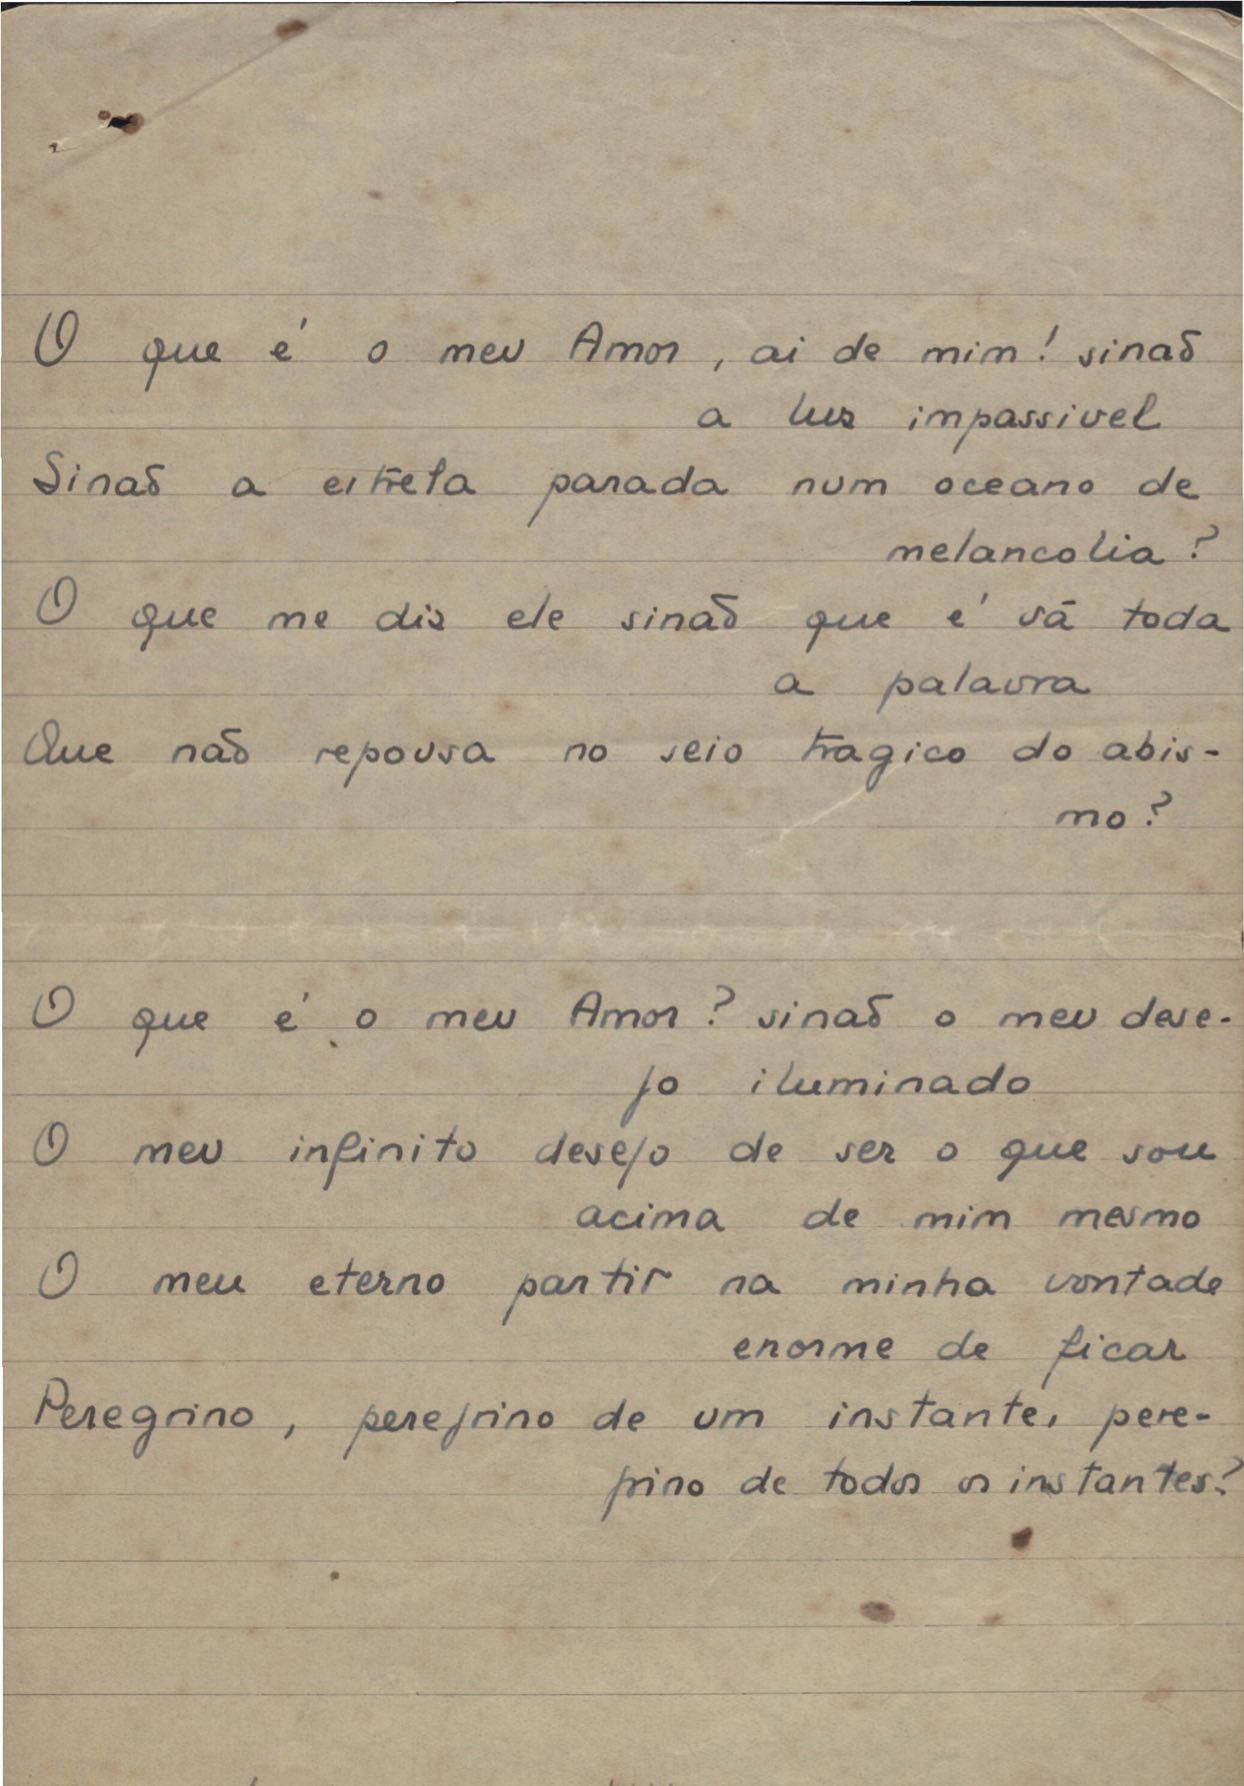 O que é o meu Amor, ai de mim! sinaõ
a luz impassivel
Sinaõ a estrela parada num oceano de
melancolia?
O que me diz ele sinaõ que é vã toda
a palavra
Que naõ repousa no seio tragico do abis-
mo?
O que é o meu Amor? sinaõ o meu dese-
jo iluminado
O meu infinito desejo de ser o que sou
acima de mim mesmo
O meu eterno partir na minha vontade
enorme de ficar
Peregrino, peregrino de um instante, pere-
grino de todos os instantes?